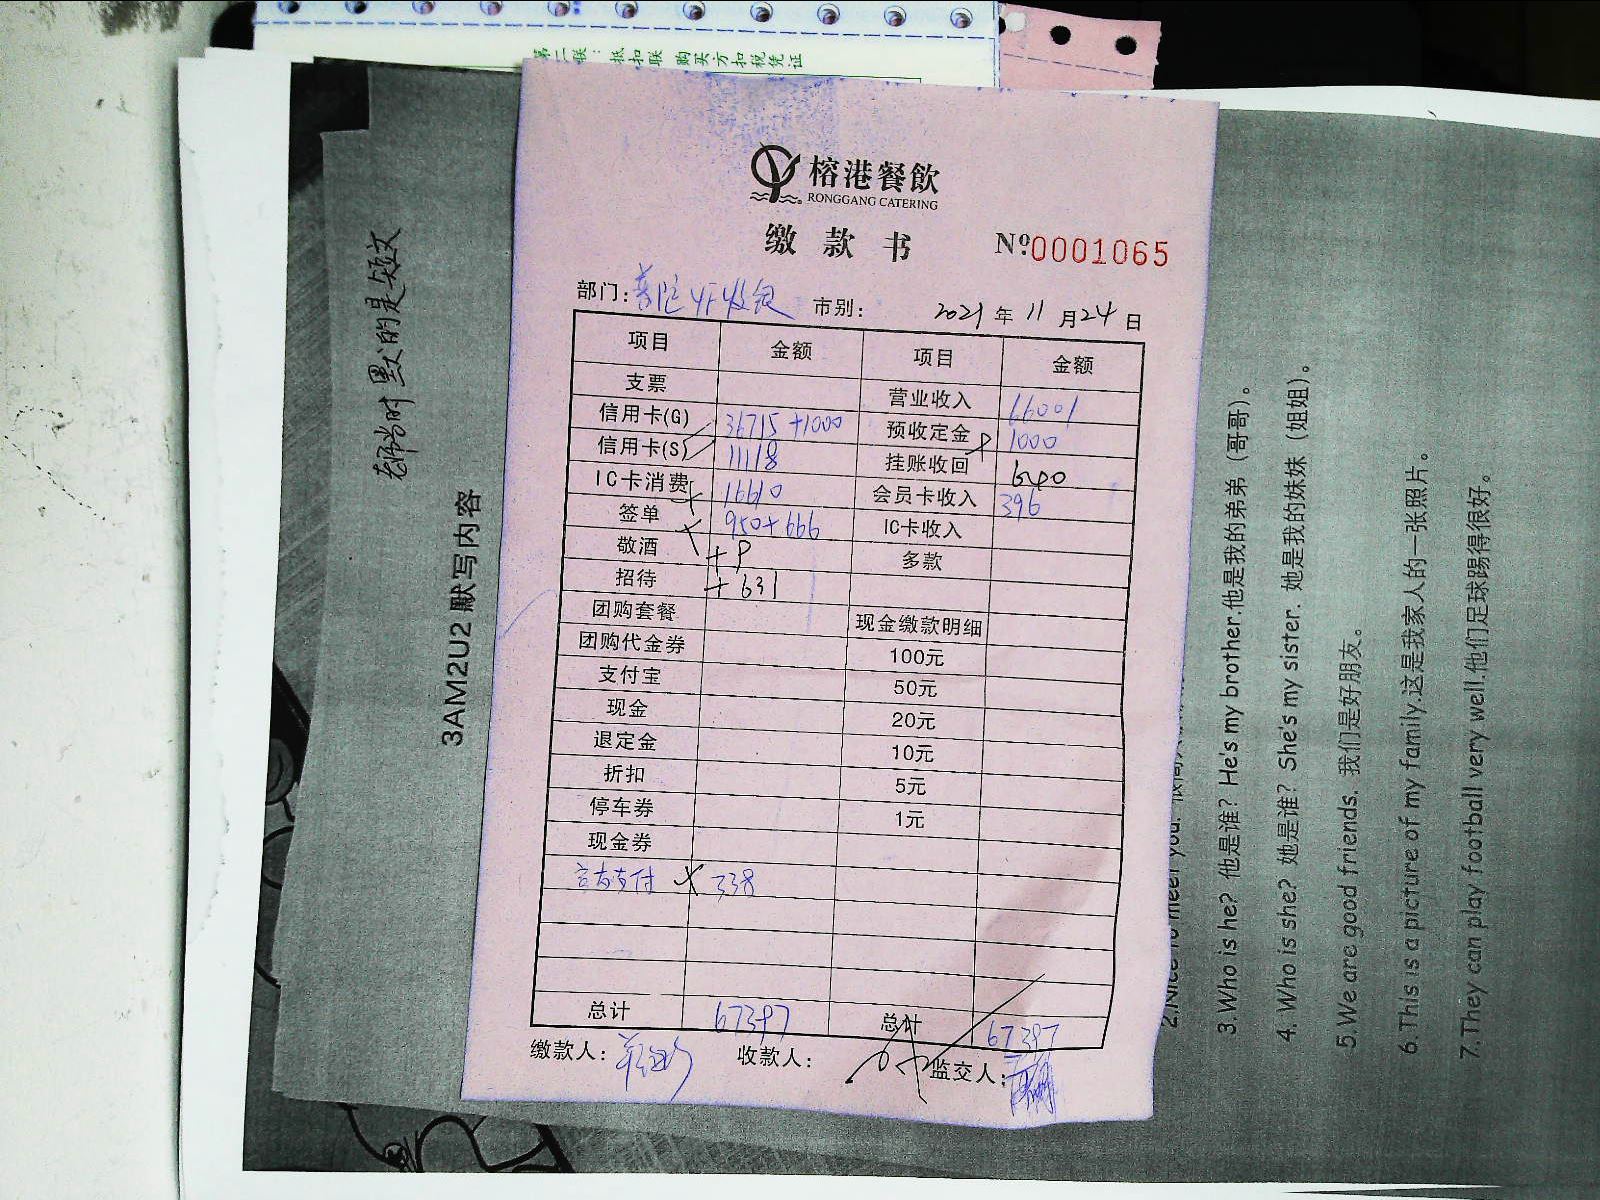 第二联：抵扣联 购买方扣税凭证
榕港餐飲
RONGGANG CATERING
缴款书 Nº:0001065
部门： 市别： 2021年11月24日
项目 金额 项目 金额
支票 营业收入 66001
信用卡(G) 36715+1000 预收定金 1000
信用卡(S) 11118 挂账收回
IC卡消费 16610 会员卡收入 396
签单 950+666 IC卡收入
敬酒 多款
招待 +631
团购套餐 现金缴款明细
团购代金券 100元
支付宝 50元
现金 20元
退定金 10元
折扣 5元
停车券 1元
现金券
338
总计 67397 总计 67397
缴款人： 收款人： 监交人：
老师当时默的是短文
3AM2U2 默写内容
3.Who is he? 他是谁? He's my brother.他是我的弟弟（哥哥）。
4. Who is she? 她是谁? She's my sister. 她是我的妹妹（姐姐）。
5.We are good friends. 我们是好朋友。
6.This is a picture of my family.这是我家人的一张照片。
7.They can play football very well.他们足球踢得很好。